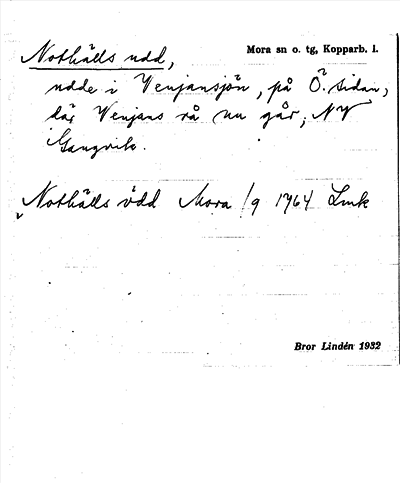 Nothälls udd,
Mora sn o. tg, Kopparb. l.
udde i Venjansjön, på Ö. sidan,
där Venjans rå nu går, NV
Gangvik.
Nothälls ödd Mora /9 1764 Lmk
Bror Lindén 1932